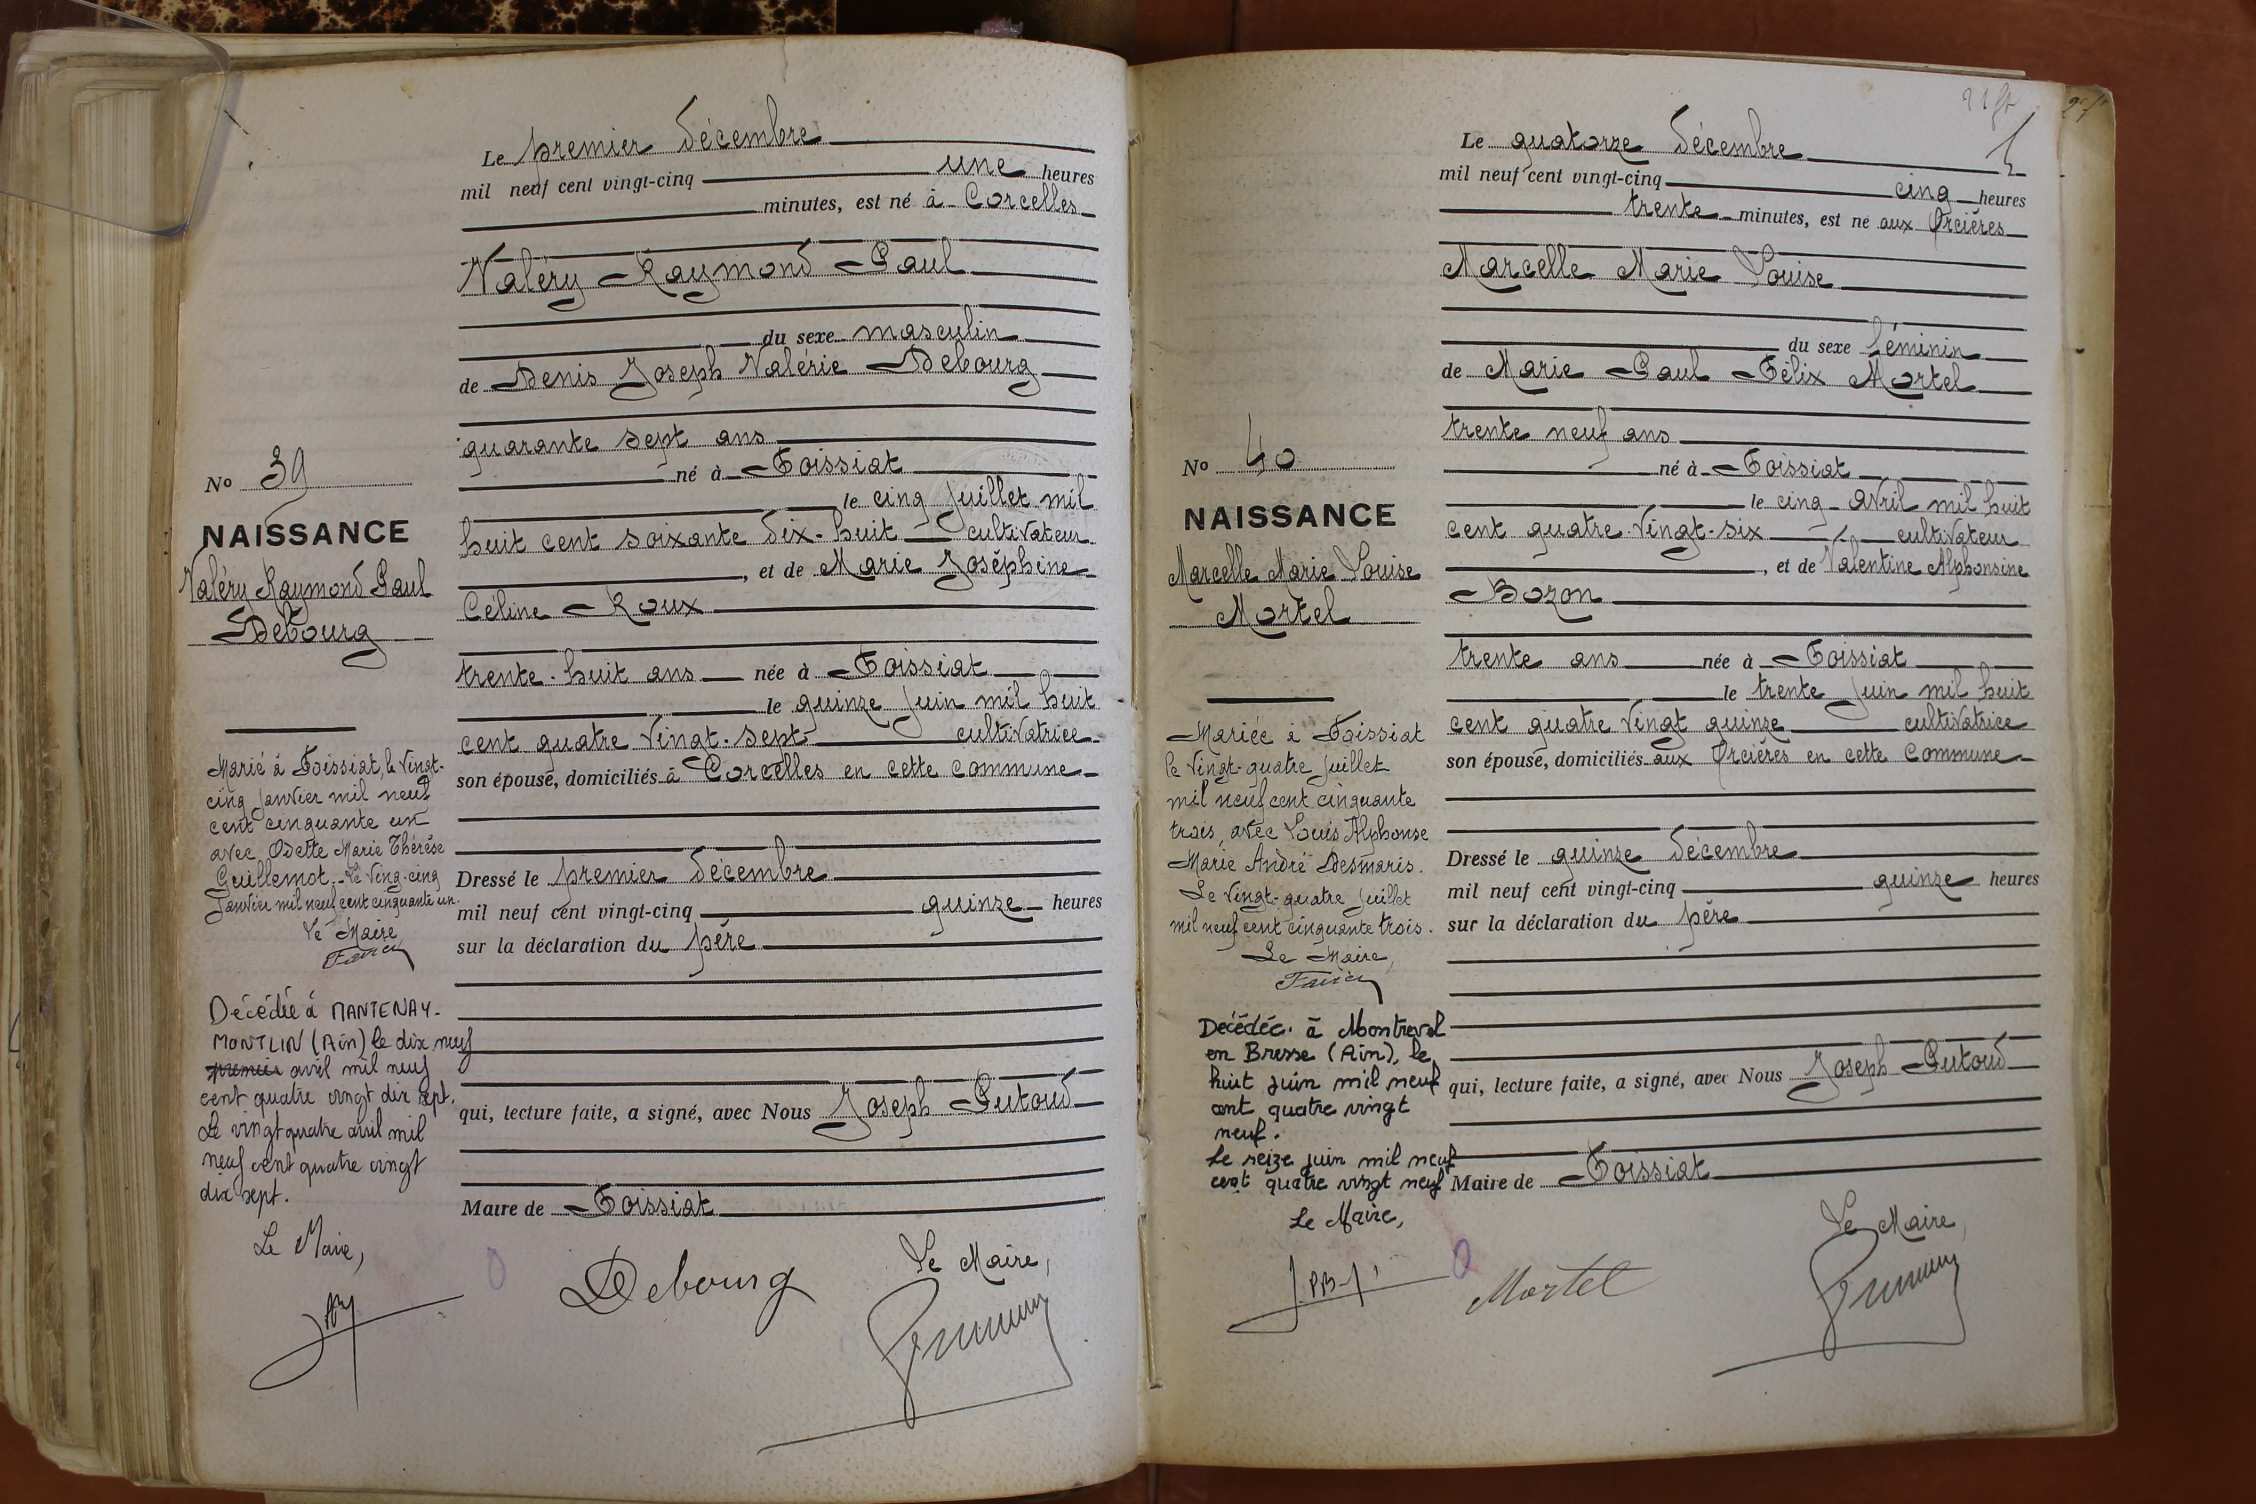 Le premier décembre
mil neuf cent vingt-cinq une heures
minutes, est né à Corcelles
Valéry Raymond Paul
du sexe masculin
de Denis Joseph Valérie Debourg
quarante sept ans
né à Foissiat
le cinq juillet mil
huit cent soixante dix-huit cultivateur
, et de Marie Joséphine
Céline Roux
trente-huit ans née à Foissiat
le quinze juin mil huit
cent quatre vingt-sept cultivatrice
son épouse, domiciliés à Corcelles en cette commune
Dressé le premier décembre
mil neuf cent vingt-cinq quinze heures
sur la déclaration du père
qui, lecture faite, a signé, avec Nous Joseph Putoud
Maire de Foissiat
Debourg
Le Maire,
No 39
NAISSANCE
Valéry Raymond Paul
Debourg
Marié à Foissiat, le vingt-
cinq janvier mil neuf
cent cinquante un
avec Odette Marie Thérèse
Guillemot. Le ving-cinq
janvier mil neuf cent cinquante un.
Le Maire
Décédée à MANTENAY-
MONTLIN (Ain) le dix neuf
premier avril mil neuf
cent quatre vingt dix sept.
Le vingt quatre avril mil
neuf cent quatre vingt
dix sept.
Le Maire,
Le quatorze décembre
mil neuf cent vingt-cinq cinq heures
trente minutes, est né aux Orcières
Marcelle Marie Louise
du sexe féminin
de Marie Paul Félix Mortel
trente neuf ans
né à Foissiat
le cinq avril mil huit
cent quatre-vingt-six cultivateur
, et de Valentine Alphonsine
Bozon
trente ans née à Foissiat
le trente juin mil huit
cent quatre vingt quinze cultivatrice
son épouse, domiciliés aux Orcières en cette commune
Dressé le quinze décembre
mil neuf cent vingt-cinq quinze heures
sur la déclaration du père
qui, lecture faite, a signé, avec Nous Joseph Putoud
Maire de Foissiat
Mortel
Le Maire,
No 40
NAISSANCE
Marcelle Marie Louise
Mortel
Mariée à Foissiat
le vingt-quatre juillet
mil neuf cent cinquante
trois, avec Louis Alphonse
Marie André Desmaris.
Le vingt-quatre juillet
mil neuf cent cinquante trois.
Le Maire,
Décédée à Montrevel
en Bresse (Ain), le
huit juin mil neuf
cent quatre vingt
neuf.
Le seize juin mil neuf
cent quatre vingt neuf
Le Maire,